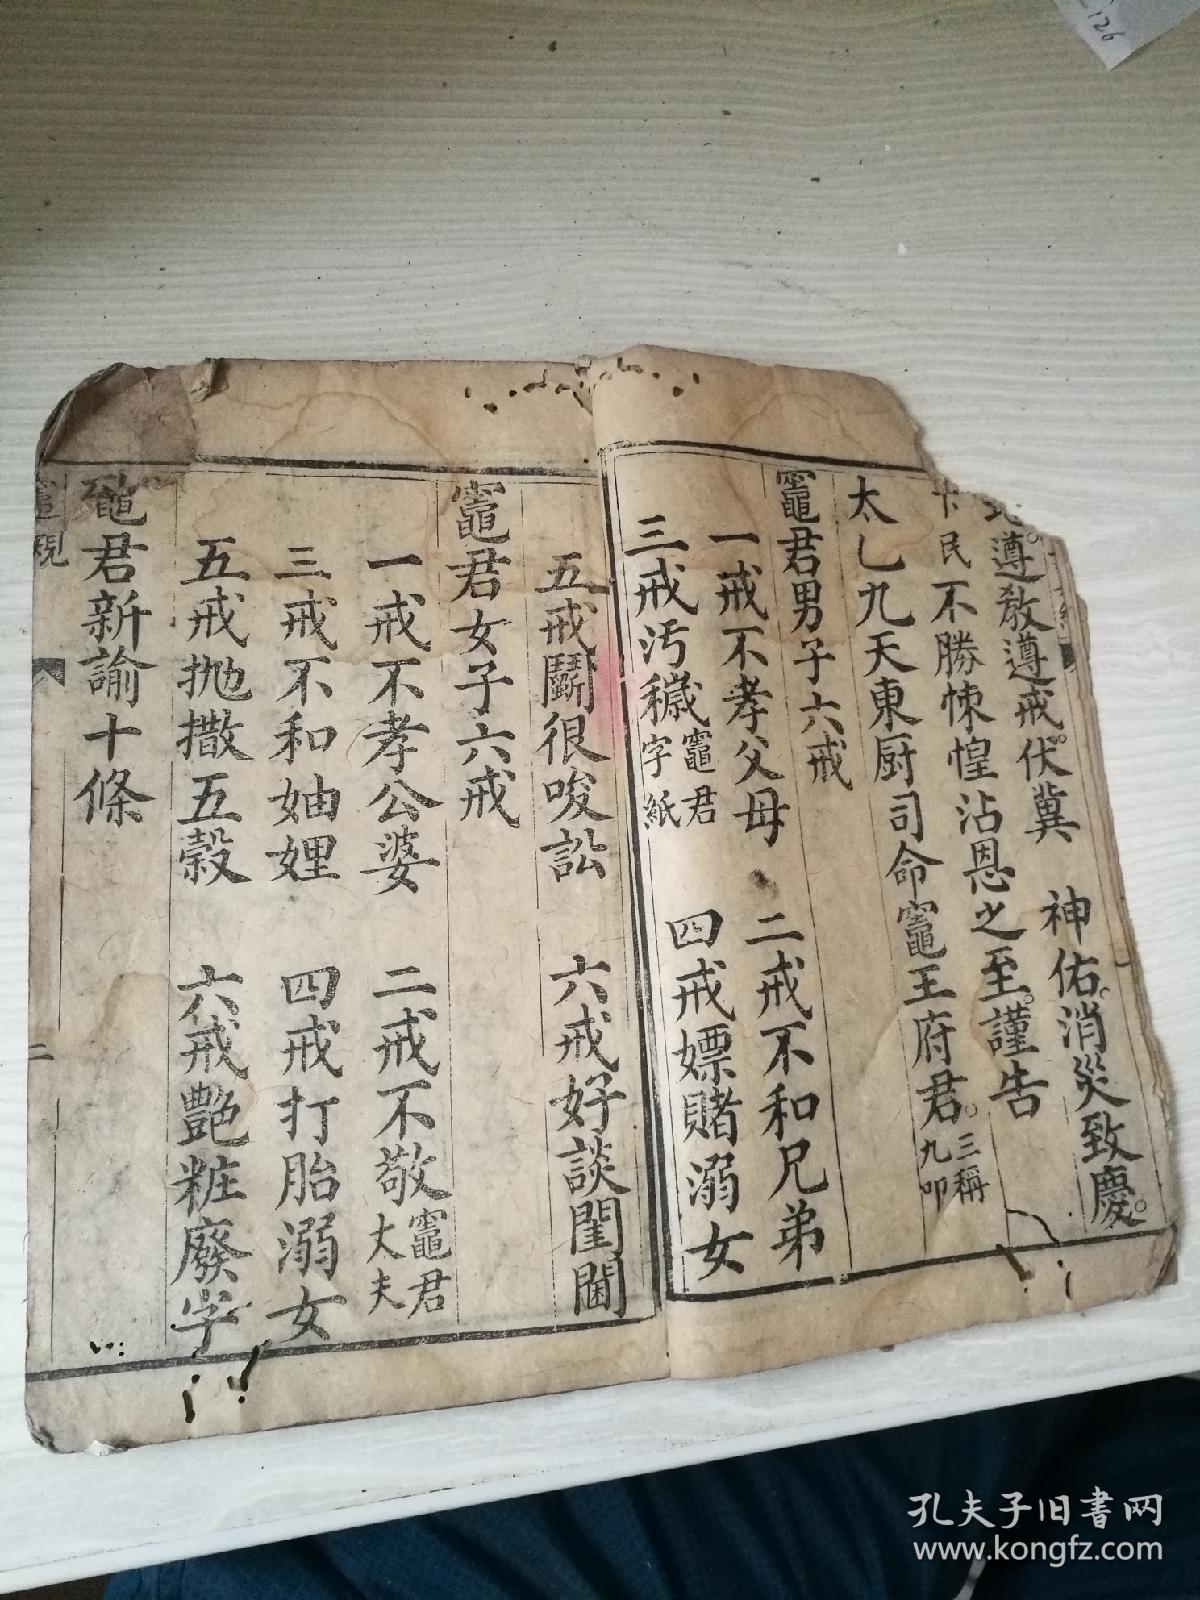 遵教遵戒。伏冀　神佑。消災致慶。
民不勝悚惶沾恩之至。謹告
太乚九天東厨司命竈王府君。三稱九叩
竈君男子六戒
一戒不孝父母　二戒不和兄弟
三戒污穢竈君字紙　四戒嫖賭溺女
五戒鬬很唆訟　六戒好談閨閫
竈君女子六戒
一戒不孝公婆　二戒不敬竈君丈夫
三戒不和妯娌　四戒打胎溺女
五戒抛撒五穀　六戒艷粧廢字
竈君新諭十條
二
126
孔夫子旧书网
www.kongfz.com